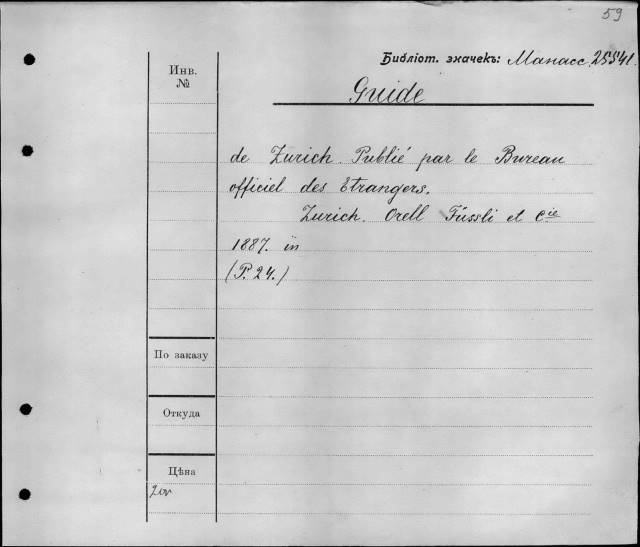 59
Библіот. значекъ: Манасс. 25541.
Инв.
№
Guide
de Zurich. Publié par le Bureau
officiel des Etrangers.
Zurich. Orell Füssli et Cie
1887. in
(P. 24.)
По заказу
Откуда
Цѣна